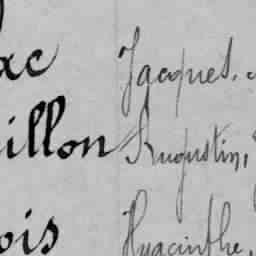 ac Jacques,
illon Augustin,
ois Hyacinthe,